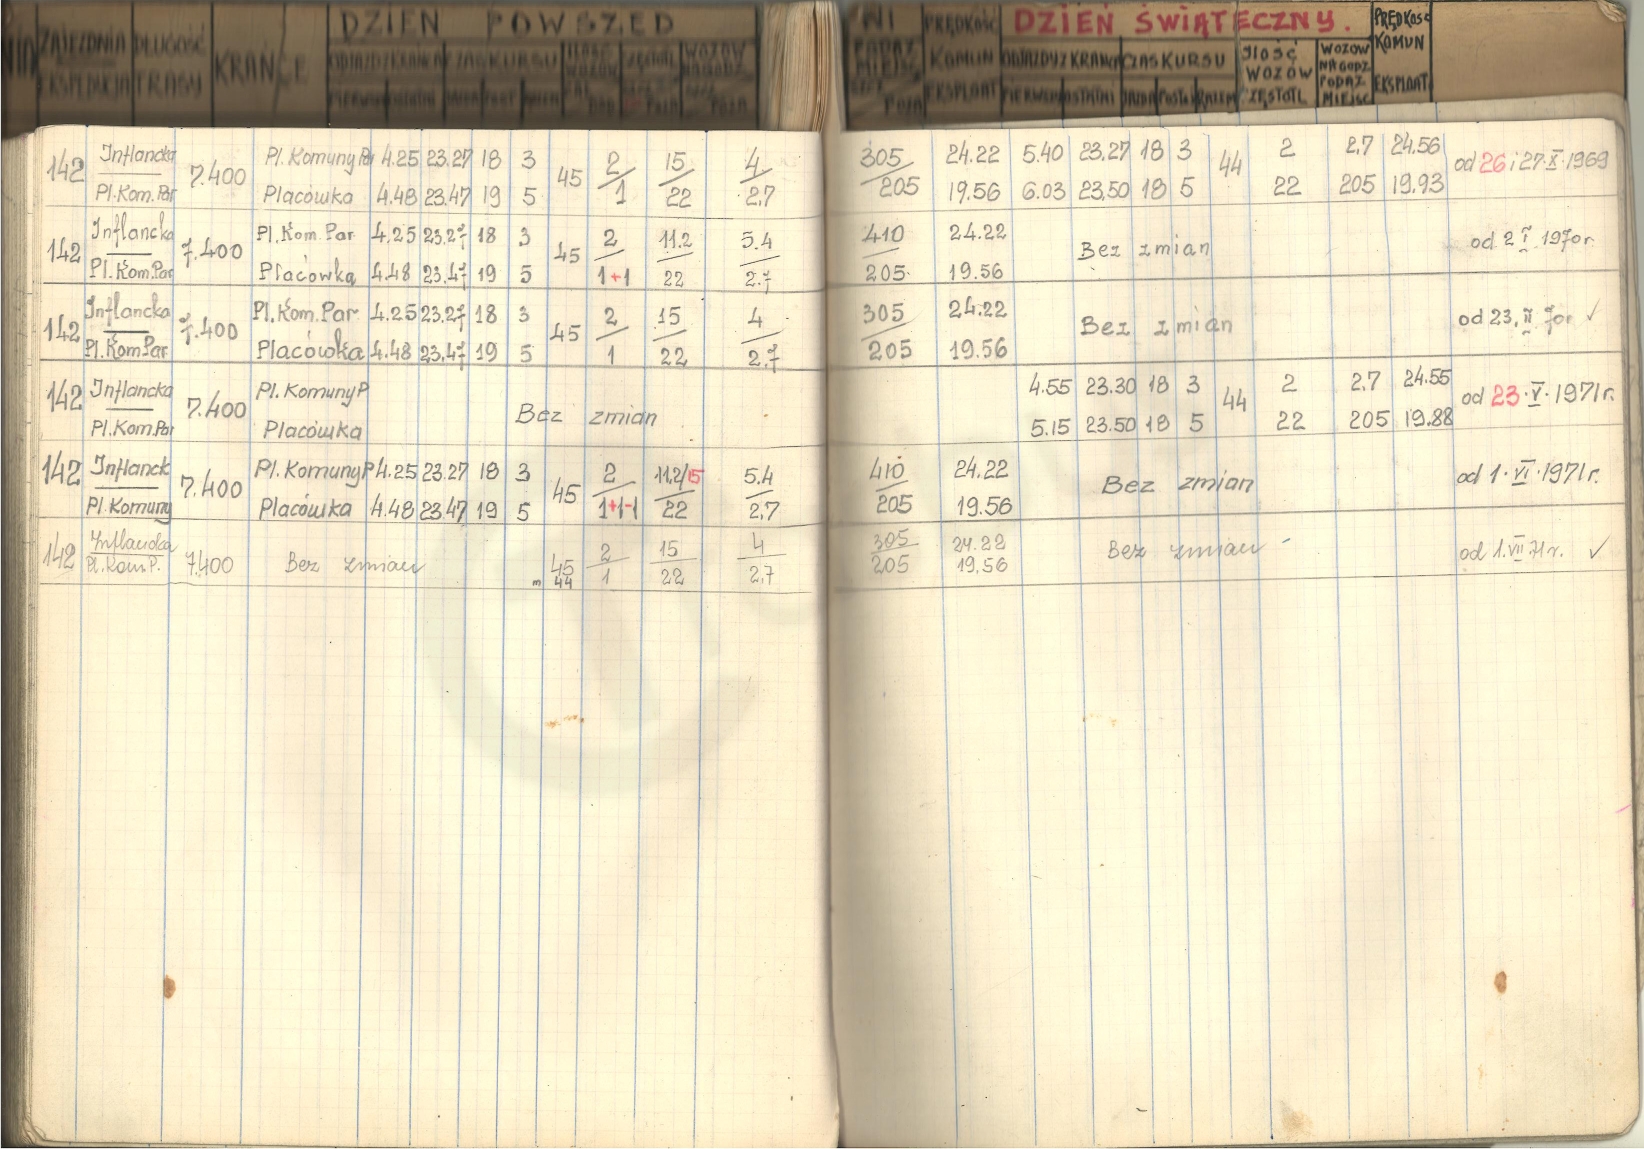 ZAJEZDNIA DŁUGOŚĆ KRAŃCE DZIEŃ POWSZED NI PRĘDKOŚĆ DZIEŃ ŚWIĄTECZNY. PRĘDKOŚĆ
EKSPEDYCJA TRASY ODJAZDY Z KRAŃCA CZAS KURSU KOMUN ODJAZDY Z KRAŃCA CZAS KURSU ILOŚĆ WOZÓW WOZÓW NA GODZ KOMUN
PIERWSZY OSTATNI EKSPLOAT PIERWSZY OSTATNI JAZDA POSTÓJ RAZEM CZĘSTOTL PODAŻ MIEJSC EKSPLOAT
142 Inflancka 7.400 Pl. Komuny Par 4.25 23.27 18 3 45 2 15 4 305 24.22 5.40 23.27 18 3 44 2 2,7 24.56 od 26 i 27·X·1969
Pl.Kom.Par Placówka 4.48 23.47 19 5 1 22 2,7 205 19.56 6.03 23.50 18 5 22 205 19.93
142 Inflancka 7.400 Pl. Kom. Par 4.25 23.27 18 3 45 2 11.2 5.4 410 24.22 Bez zmian od 2 I 1970 r.
Pl. Kom.Par Placówka 4.48 23.47 19 5 1+1 22 2.7 205 19.56
142 Inflancka 7.400 Pl. Kom. Par 4.25 23.27 18 3 45 2 15 4 305 24.22 Bez zmian od 23, II 70r ✓
Pl. Kom Par Placówka 4.48 23.47 19 5 1 22 2.7 205 19.56
142 Inflancka 7.400 Pl. Komuny P Bez zmian 4.55 23.30 18 3 44 2 2,7 24.55 od 23·V·1971 r.
Pl. Kom.Par Placówka 5.15 23.50 18 5 22 205 19.88
142 Inflanck 7.400 Pl. Komuny P 4.25 23.27 18 3 45 2 11.2/15 5.4 410 24.22 Bez zmian od 1·VI·1971 r.
Pl. Komuny Placówka 4.48 23.47 19 5 1+1-1 22 2,7 205 19.56
142 Inflancka 7.400 Bez zmian 45 2 15 4 305 24.22 Bez zmian od 1.VII 71 r. ✓
Pl. Kom. P. m 44 1 22 2,7 205 19,56